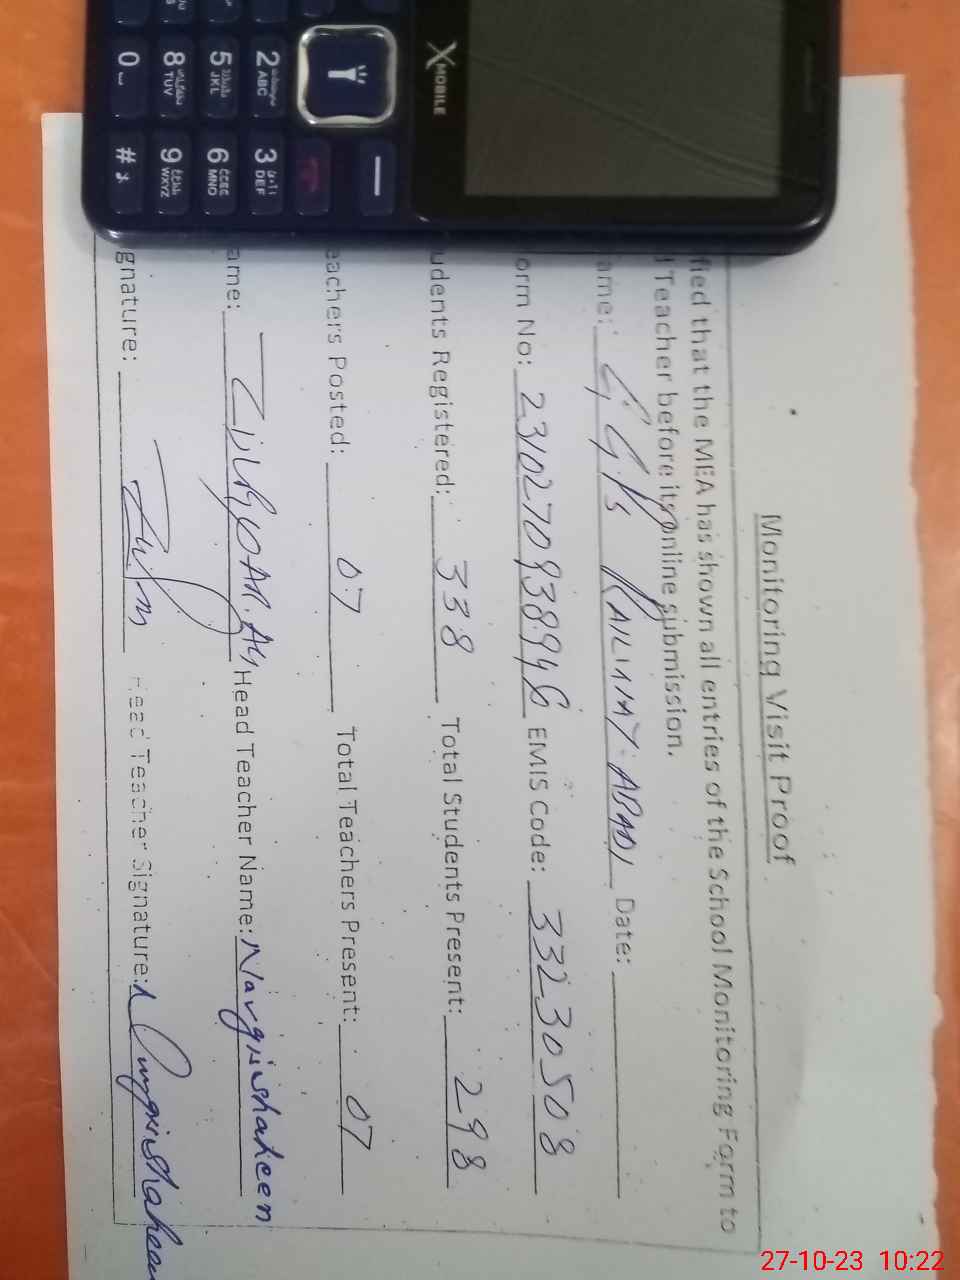 Monitoring Visit Proof
fied that the MEA has shown all entries of the School Monitoring Form to
d Teacher before its online submission.
ame: Date:
orm No: EMIS Code: 33230508
udents Registered: 338 Total Students Present: 298
eachers Posted: 07 Total Teachers Present: 07
ame: Head Teacher Name: Nargis shaheen
gnature: Head Teacher Signature: Nargis shaheen
XMOBILE
2 ABC
3 DEF
5 JKL
6 MNO
8 TUV
9 WXYZ
0
#
27-10-23 10:22